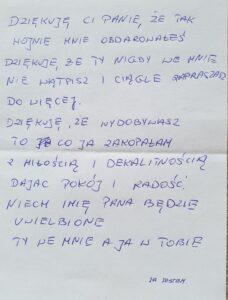 DZIĘKUJĘ CI PANIE, ŻE TAK
HOJNIE MNIE OBDAROWAŁEŚ
DZIĘKUJĘ, ŻE TY NIGDY WE MNIE
NIE WĄTPISZ I CIĄGLE ZAPRASZASZ
DO WIĘCEJ.
DZIĘKUJĘ, ŻE WYDOBYWASZ
TO CO JA ZAKOPAŁAM
Z MIŁOŚCIĄ I DEKALITNOŚCIĄ
DAJĄC POKÓJ I RADOŚĆ.
NIECH IMIĘ PANA BĘDZIE
UWIELBIONE
TY WE MNIE A JA W TOBIE
JA JESTEM